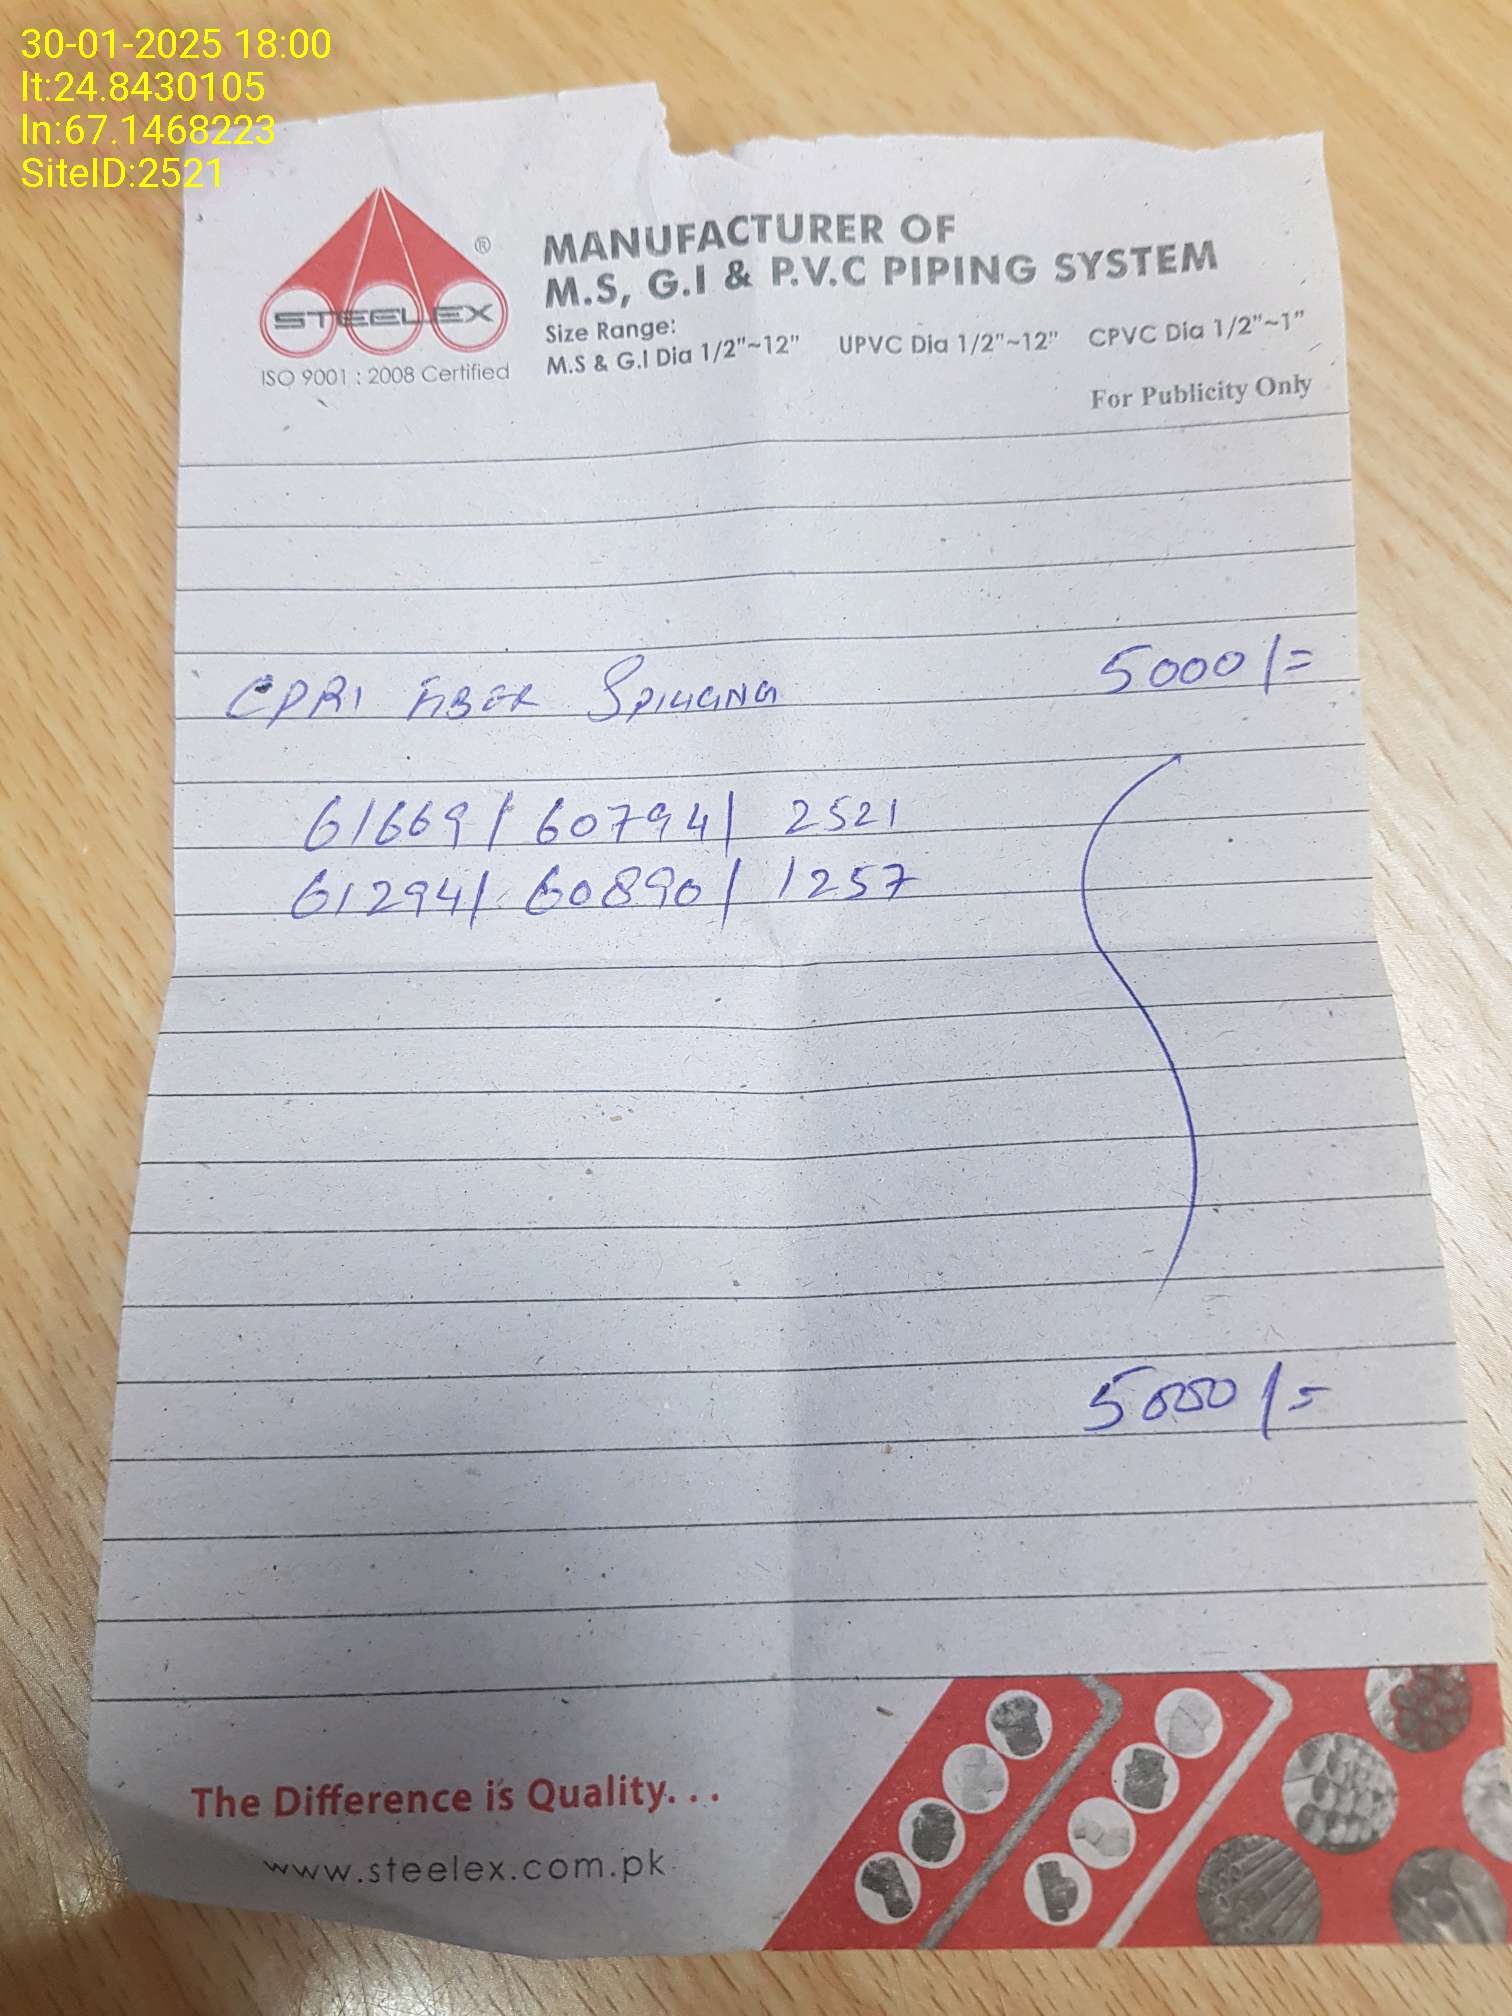 30-01-2025 18:00
lt:24.8430105
ln:67.1468223
SiteID:2521
STEELEX ®
ISO 9001 : 2008 Certified
MANUFACTURER OF
M.S, G.I & P.V.C PIPING SYSTEM
Size Range:
M.S & G.I Dia 1/2"~12" UPVC Dia 1/2"~12" CPVC Dia 1/2"~1"
For Publicity Only
CPRI FIBER 5000/=
61669/60794/ 2521
61294/ 60890/ 1257
5000/=
The Difference is Quality...
www.steelex.com.pk